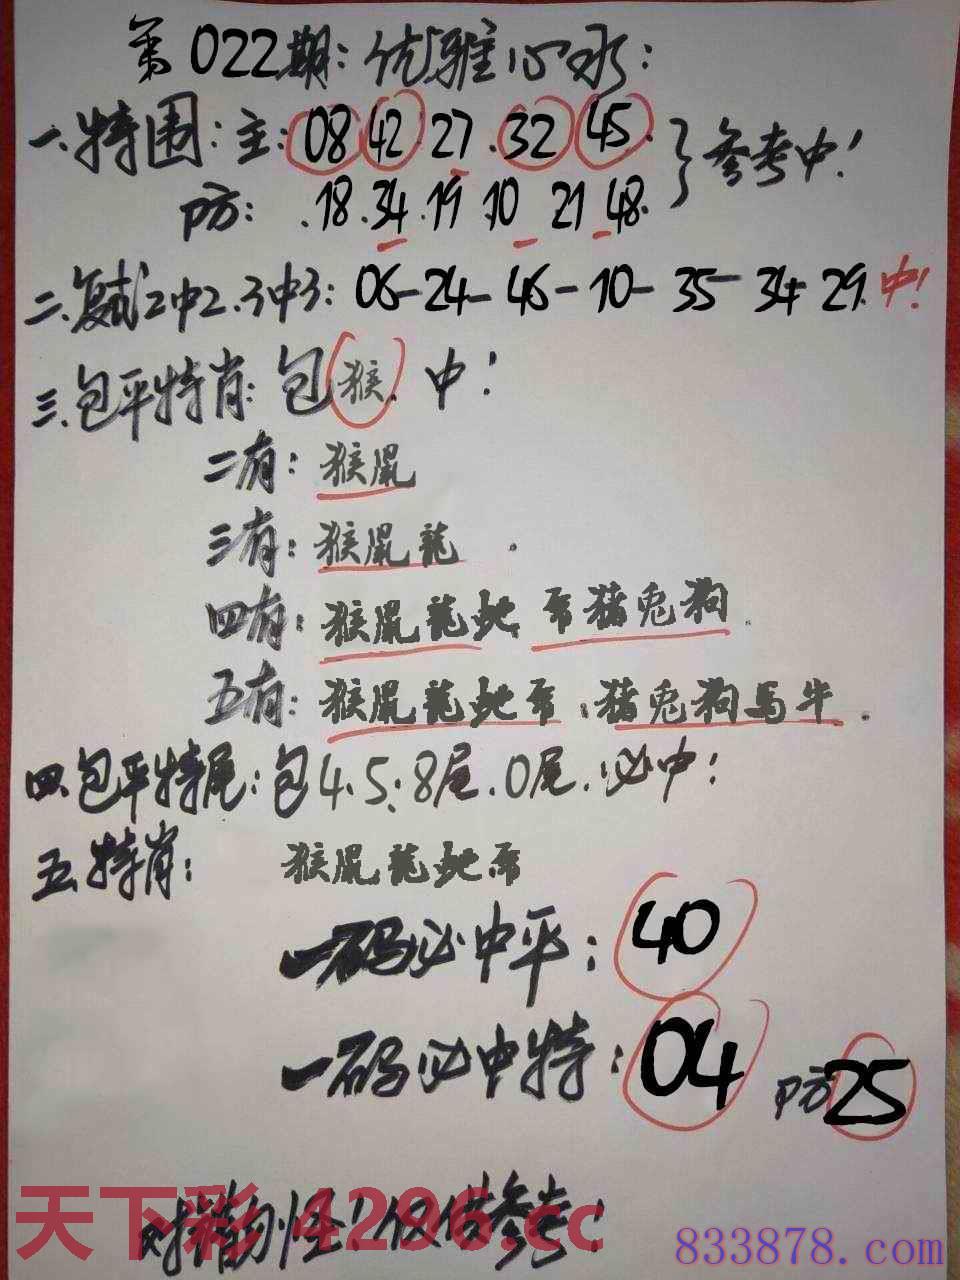 第022期:优雅心水:
一.特围:主:08 42 27.32 45.
参考中!
防:.18.34.19 10 21 48.
二.复试2中2.3中3:06-24-46-10-35-34-29.中!
三.包平特肖:包猴.中!
二有:猴鼠
三有:猴鼠龍.
四有:猴鼠龍蛇 猪兔狗.
五有:猴鼠龍蛇 猪兔狗馬牛.
四.包平特尾:包4.5:8尾.0尾.必中!
五.特肖:猴鼠龍蛇
一码必中平:40
一码必中特:04 防25
料 勿怪!仅供参考!
天下彩 4296.cc
833878.com